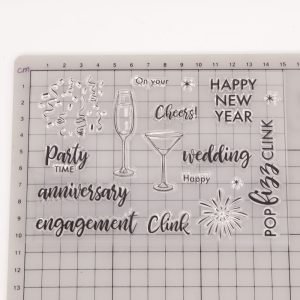 cm 1 2 3 4 5 6 7 8 9 10 11 12 13 14 15
1
2
3
4
5
6
7
8
9
10
11
12
13
On your
HAPPY
NEW
YEAR
Cheers!
Party
TIME
wedding
Happy
anniversary
engagement
Clink
POP fizz CLINK